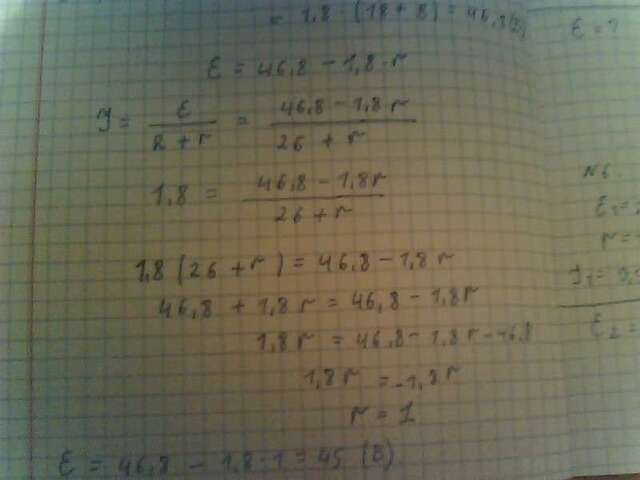 = 1,8 · (18 + 8) = 46,8 (В)
ε = ?
ε = 46,8 - 1,8 · r
I = ε / (R + r) = (46,8 - 1,8 r) / (26 + r)
1,8 = (46,8 - 1,8r) / (26 + r)
1,8 (26 + r) = 46,8 - 1,8 r
46,8 + 1,8 r = 46,8 - 1,8r
1,8r = 46,8 - 1,8r - 46,8
1,8r = -1,8r
r = 1
ε = 46,8 - 1,8 · 1 = 45 (В)
N6.
ε₁ =
r =
I₁ =
ε₂ =